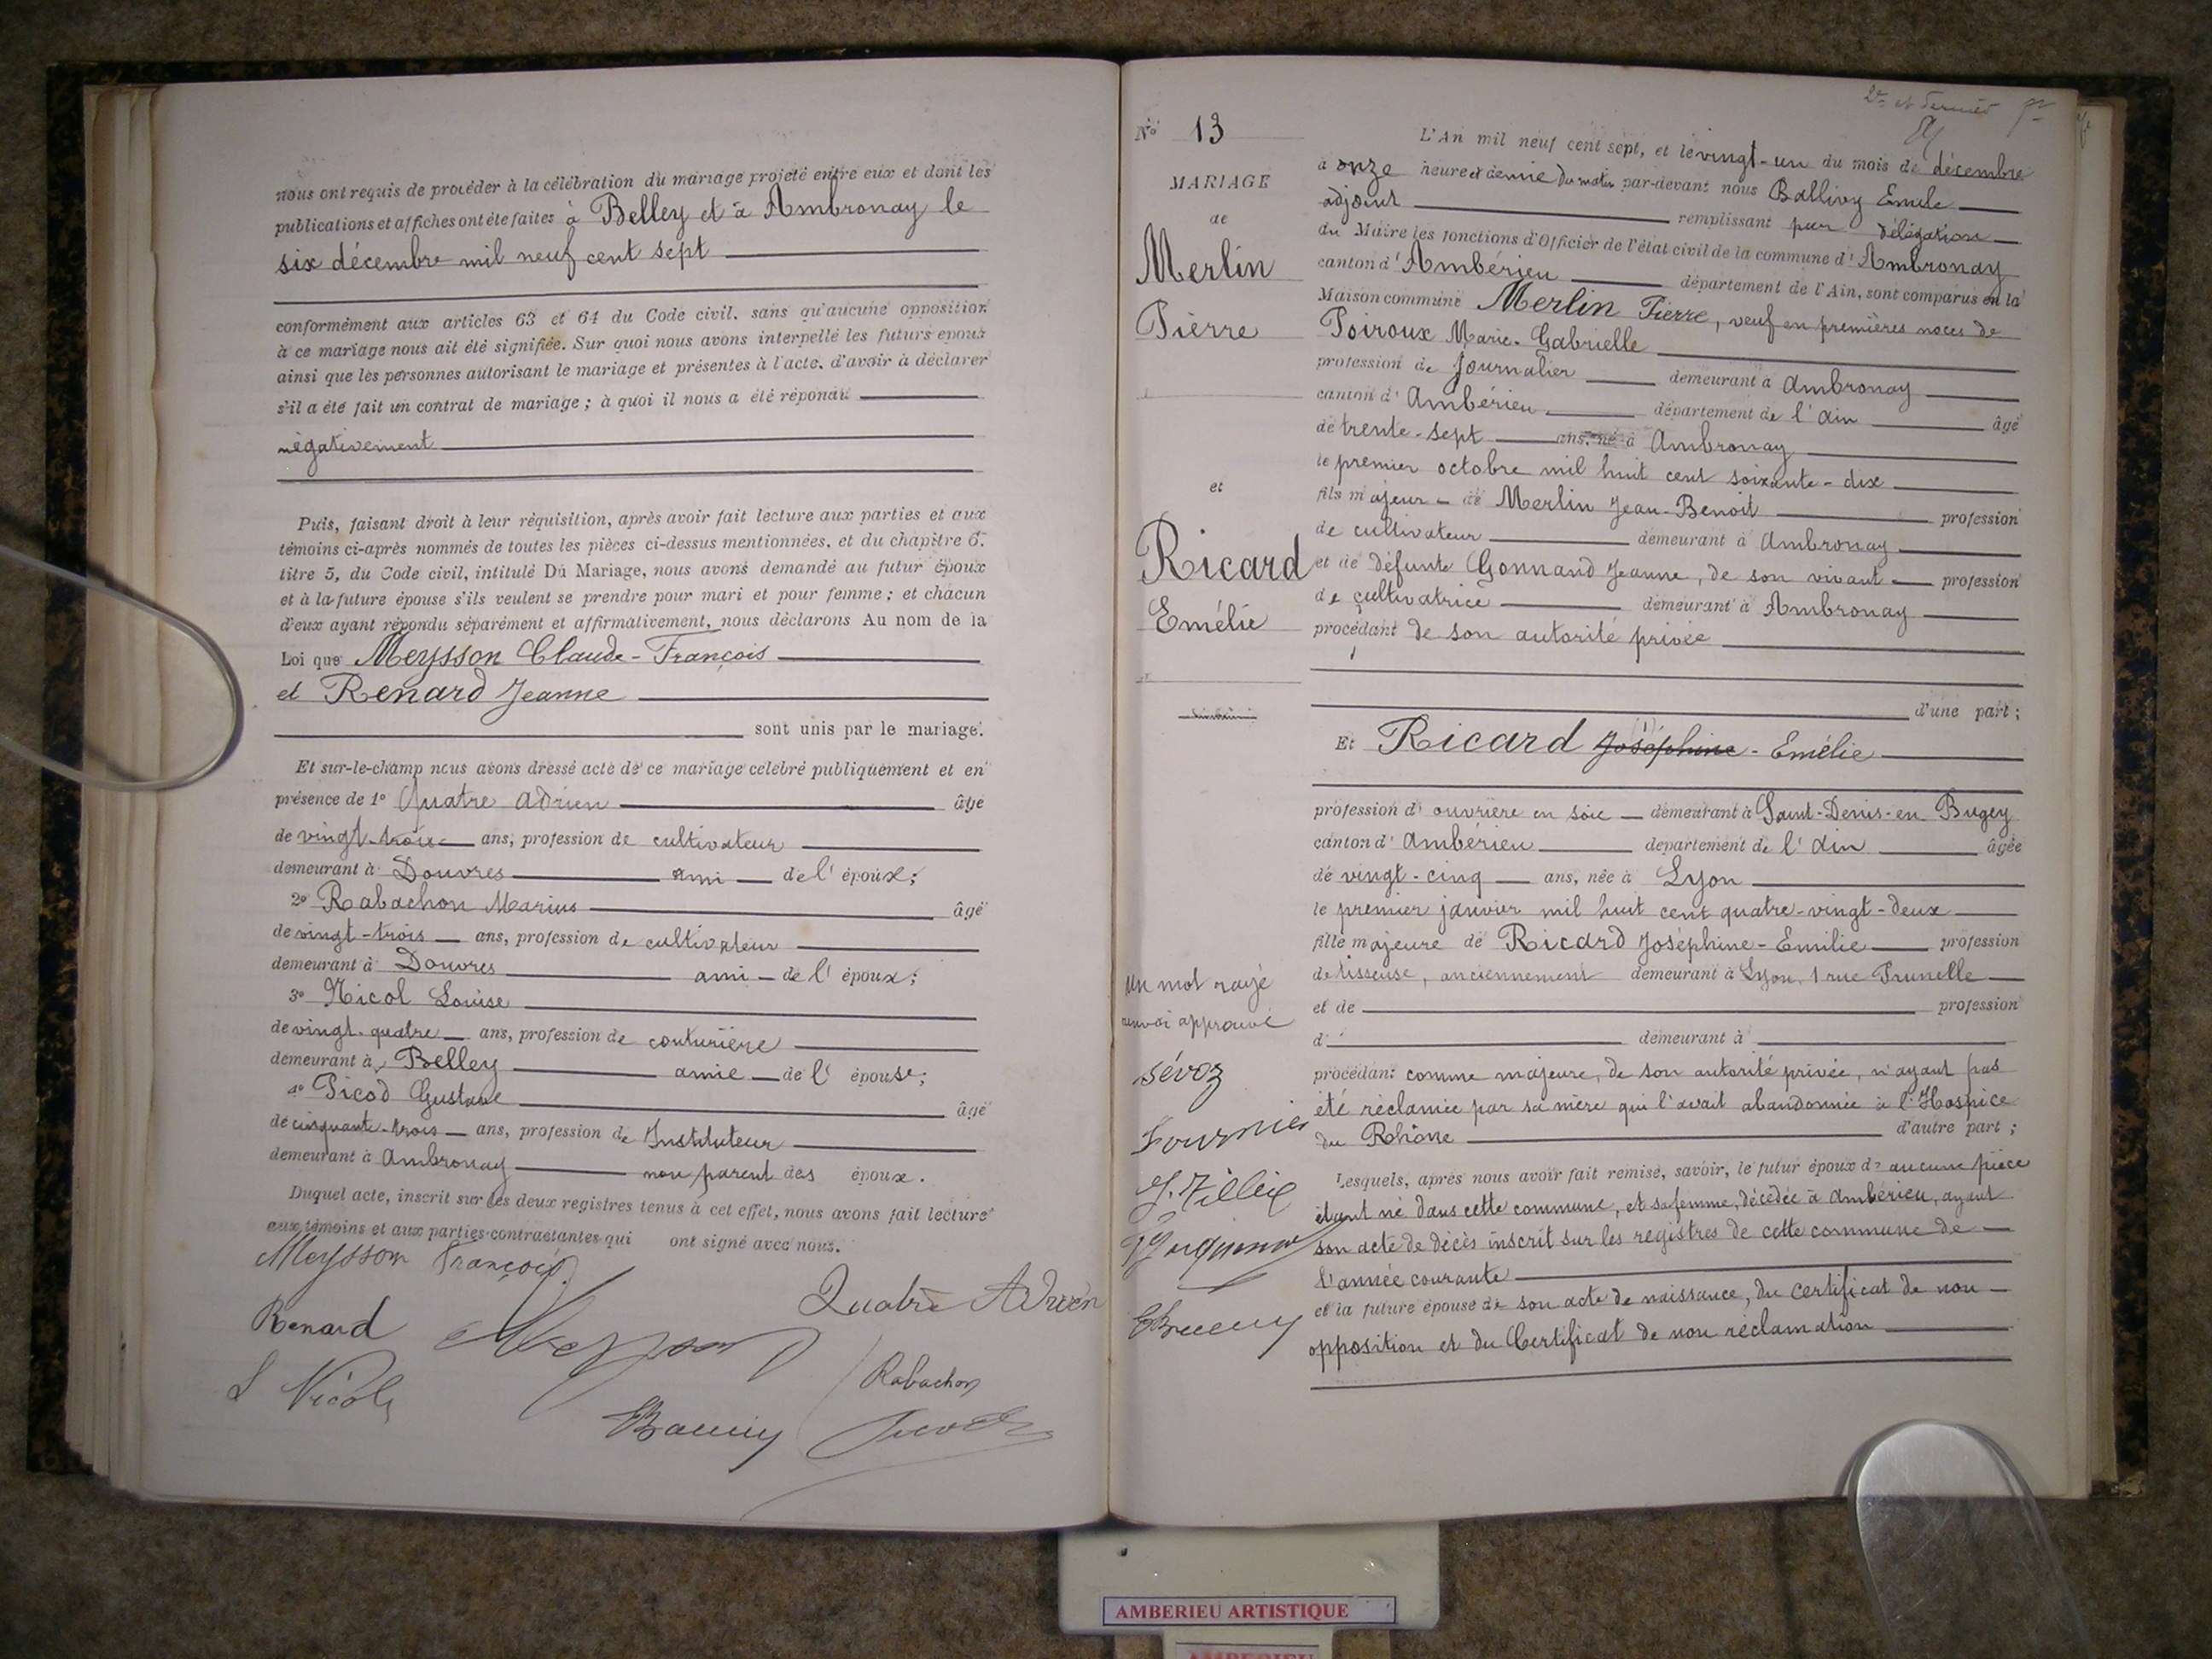 nous ont requis de procéder à la célébration du mariage projeté entre eux et dont les
publications et affiches ont été faites à Belley et à Ambronay le
six décembre mil neuf cent sept
conformément aux articles 63 et 64 du Code civil, sans qu'aucune opposition
à ce mariage nous ait été signifiée. Sur quoi nous avons interpellé les futurs epoux
ainsi que les personnes autorisant le mariage et présentes à l'acte, d'avoir à déclarer
s'il a été fait un contrat de mariage ; à quoi il nous a été répondu
négativement
Puis, faisant droit à leur réquisition, après avoir fait lecture aux parties et aux
témoins ci-après nommés de toutes les pièces ci-dessus mentionnées, et du chapitre 6.
titre 5, du Code civil, intitulé Du Mariage, nous avons demandé au futur époux
et à la future épouse s'ils veulent se prendre pour mari et pour femme ; et chacun
d'eux ayant répondu séparément et affirmativement, nous déclarons Au nom de la
Loi que Meysson Claude-François
et Renard Jeanne
sont unis par le mariage.
Et sur-le-champ nous avons dressé acte de ce mariage celébré publiquement et en
présence de 1º Quatre Adrien âgé
de vingt-trois ans, profession de cultivateur
demeurant à Douvres ami de l'époux ;
2º Rabachon Marius âgé
de vingt-trois ans, profession de cultivateur
demeurant à Douvres ami de l'époux ;
3º Nicol Louise
de vingt-quatre ans, profession de couturière
demeurant à Belley amie de l'épouse ;
4º Picod Gustave âgé
de cinquante-trois ans, profession de Instituteur
demeurant à Ambronay non parent des époux.
Duquel acte, inscrit sur les deux registres tenus à cet effet, nous avons fait lecture
aux témoins et aux parties contractantes qui ont signé avec nous.
Meysson François
Quatre Adrien
Renard
Meysson
L Nicol
Rabachon
Picod
2e et dernier
Nº 13
MARIAGE
de
Merlin
Pierre
et
Ricard
Emélie
Un mot rayé
renvoi approuvé
Sévoz
Fournier
L'An mil neuf cent sept, et le vingt-un du mois de décembre
à onze heure et demie du matin par-devant nous Ballivy Emile
adjoint remplissant par délégation
du Maire les fonctions d'Officier de l'état civil de la commune d'Ambronay
canton d'Ambérieu département de l'Ain, sont comparus en la
Maison commune Merlin Pierre, veuf en premières noces de
Poiroux Marie-Gabrielle
profession de Journalier demeurant à Ambronay
canton d'Ambérieu département de l'Ain âgé
de trente-sept ans, né à Ambronay
le premier octobre mil huit cent soixante-dix
fils majeur de Merlin Jean-Benoit profession
de cultivateur demeurant à Ambronay
et de défunte Gonnand Jeanne, de son vivant profession
de cultivatrice demeurant à Ambronay
procédant de son autorité privée
d'une part ;
Et Ricard Joséphine-Emélie
profession d'ouvrière en soie demeurant à Saint-Denis-en Bugey
canton d'Ambérieu departement de l'Ain âgée
de vingt-cinq ans, née à Lyon
le premier janvier mil huit cent quatre-vingt-deux
fille majeure de Ricard Joséphine-Emilie profession
de tisseuse, anciennement demeurant à Lyon, 1 rue Prunelle
et de profession
d' demeurant à
procédant comme majeure, de son autorité privée, n'ayant pas
été réclamée par sa mère qui l'avait abandonnée à l'Hospice
du Rhône d'autre part ;
Lesquels, après nous avoir fait remise, savoir, le futur époux de aucune pièce
étant né dans cette commune, et sa femme, décédée à Ambérieu, ayant
son acte de décès inscrit sur les registres de cette commune de
l'année courante
et la future épouse de son acte de naissance, du certificat de non
opposition et du Certificat de non réclamation
AMBERIEU ARTISTIQUE
AMBERIEU